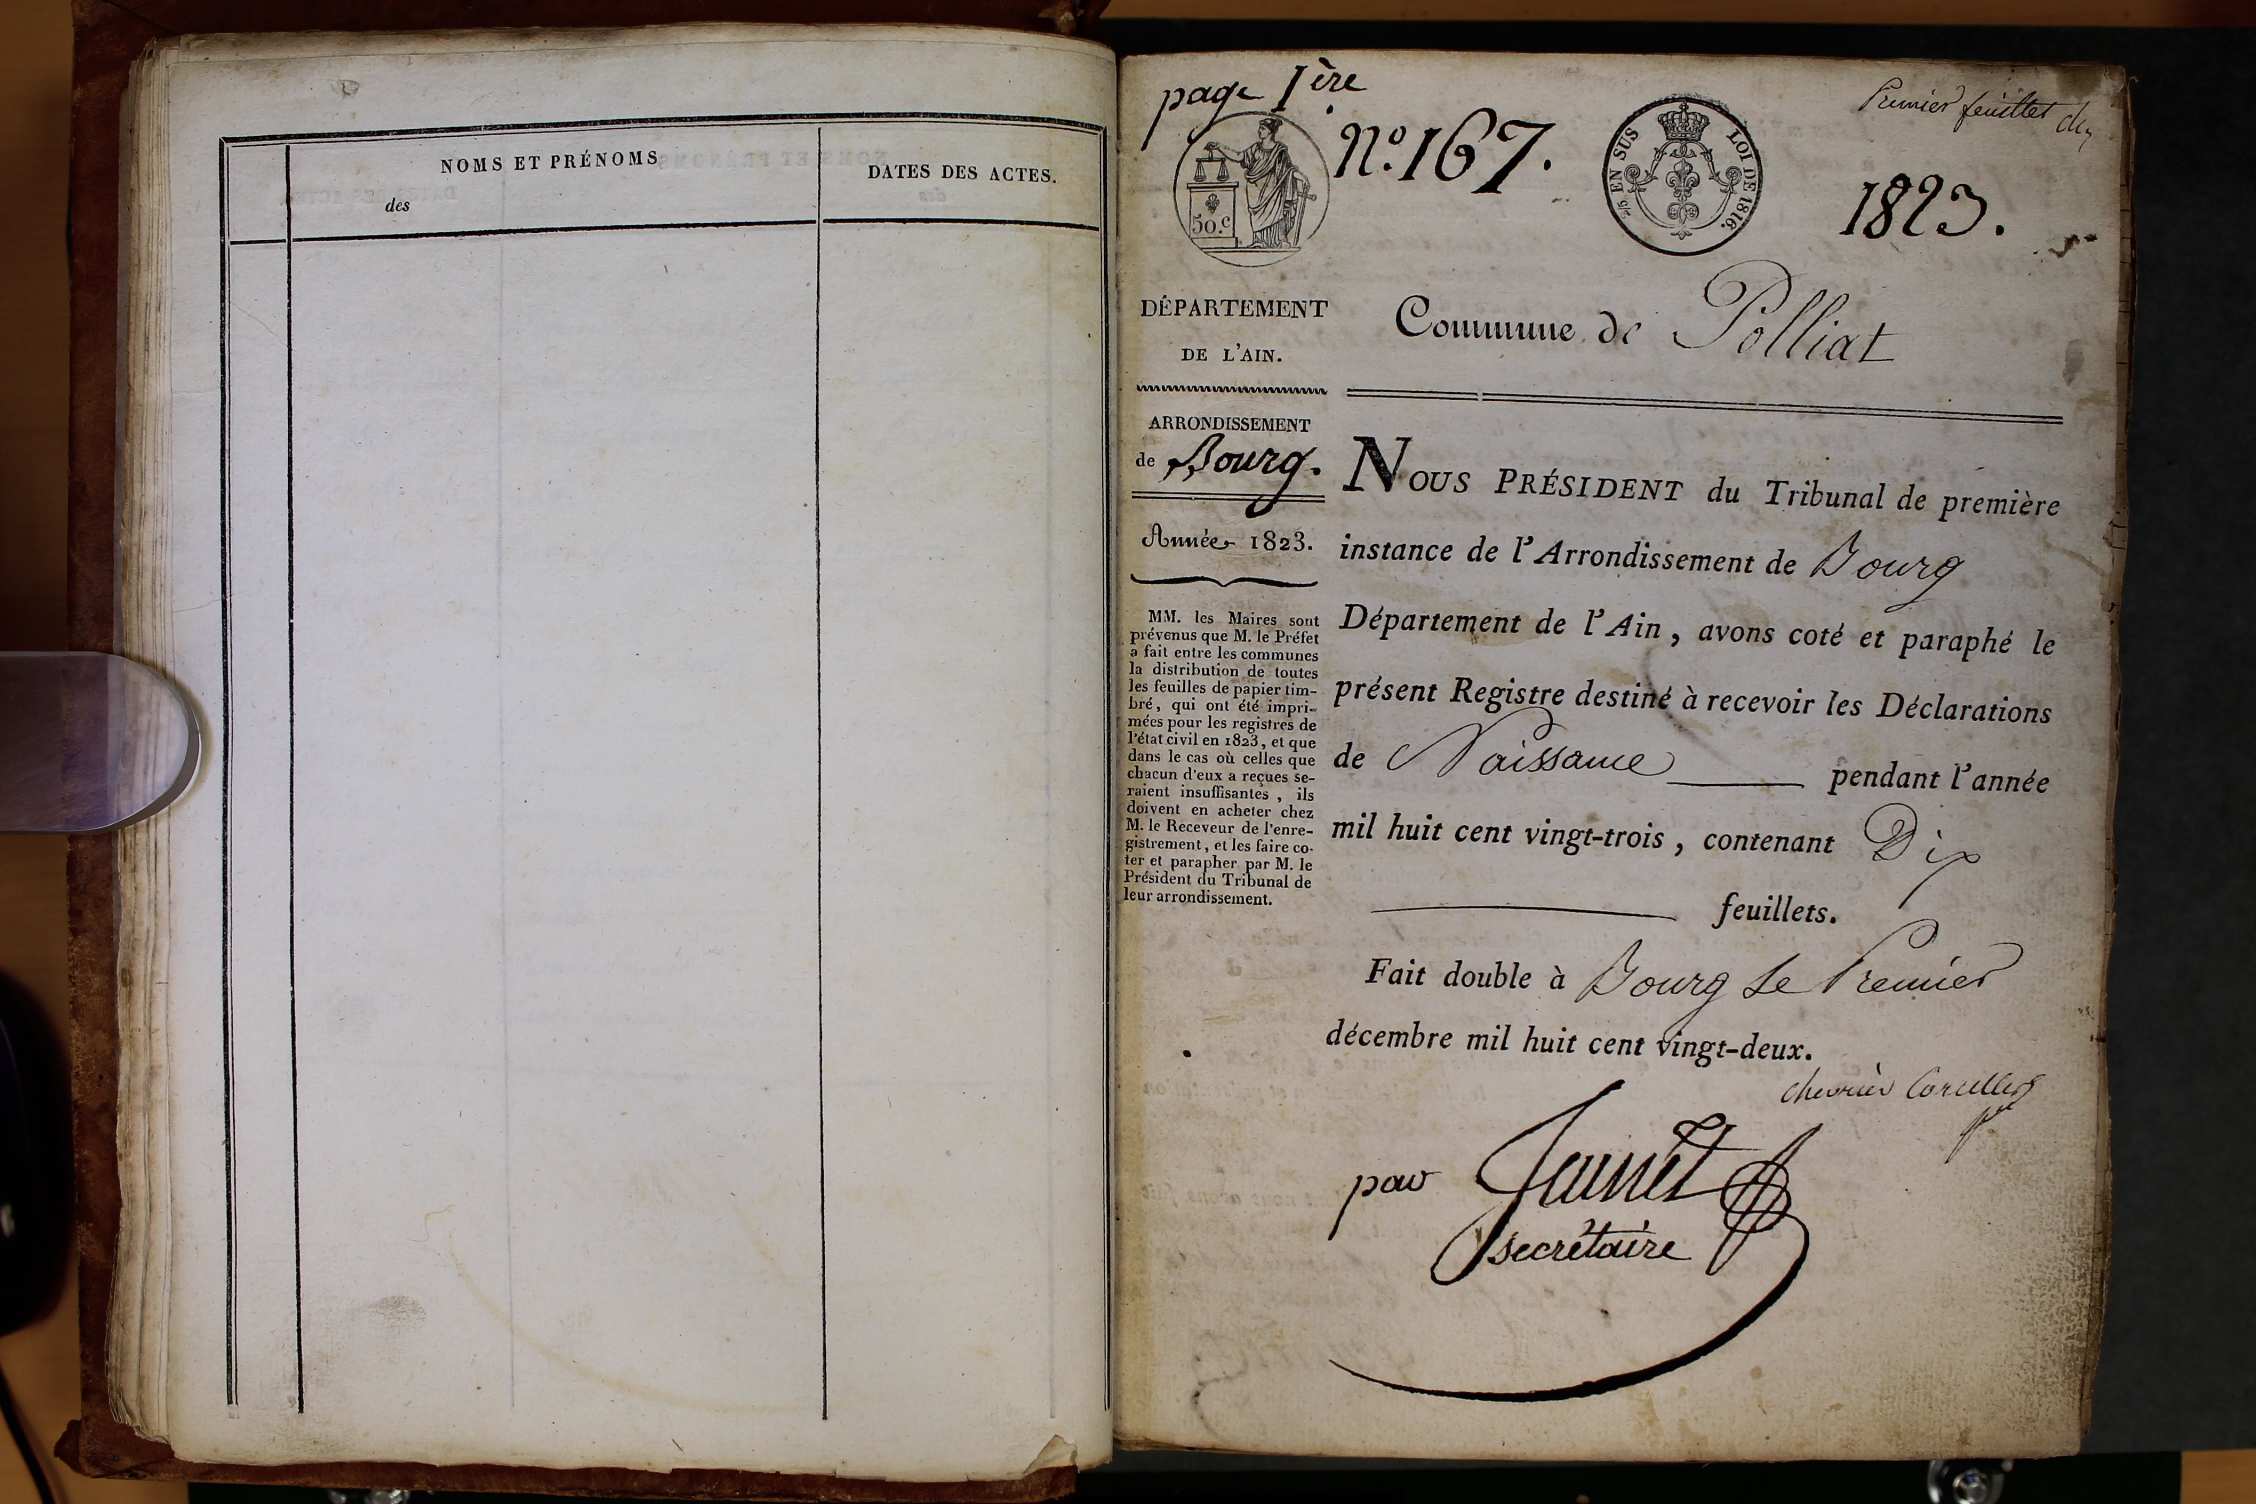 NOMS ET PRÉNOMS
des
DATES DES ACTES.
page 1ère
N.º 167.
Premier feuillet
50.c
2/5 EN SUS
LOI DE 1816.
1823.
DÉPARTEMENT
DE L'AIN.
Commune de Polliat
ARRONDISSEMENT
de Bourg.
Année 1823.
MM. les Maires sont
prévenus que M. le Préfet
a fait entre les communes
la distribution de toutes
les feuilles de papier tim-
bré, qui ont été impri-
mées pour les registres de
l'état civil en 1823, et que
dans le cas où celles que
chacun d'eux a reçues se-
raient insuffisantes, ils
doivent en acheter chez
M. le Receveur de l'enre-
gistrement, et les faire co-
ter et parapher par M. le
Président du Tribunal de
leur arrondissement.
NOUS PRÉSIDENT du Tribunal de première
instance de l'Arrondissement de Bourg
Département de l'Ain, avons coté et paraphé le
présent Registre destiné à recevoir les Déclarations
de Naissance pendant l'année
mil huit cent vingt-trois, contenant Dix
feuillets.
Fait double à Bourg le Premier
décembre mil huit cent vingt-deux.
chevrier Corcelles
par
secrétaire